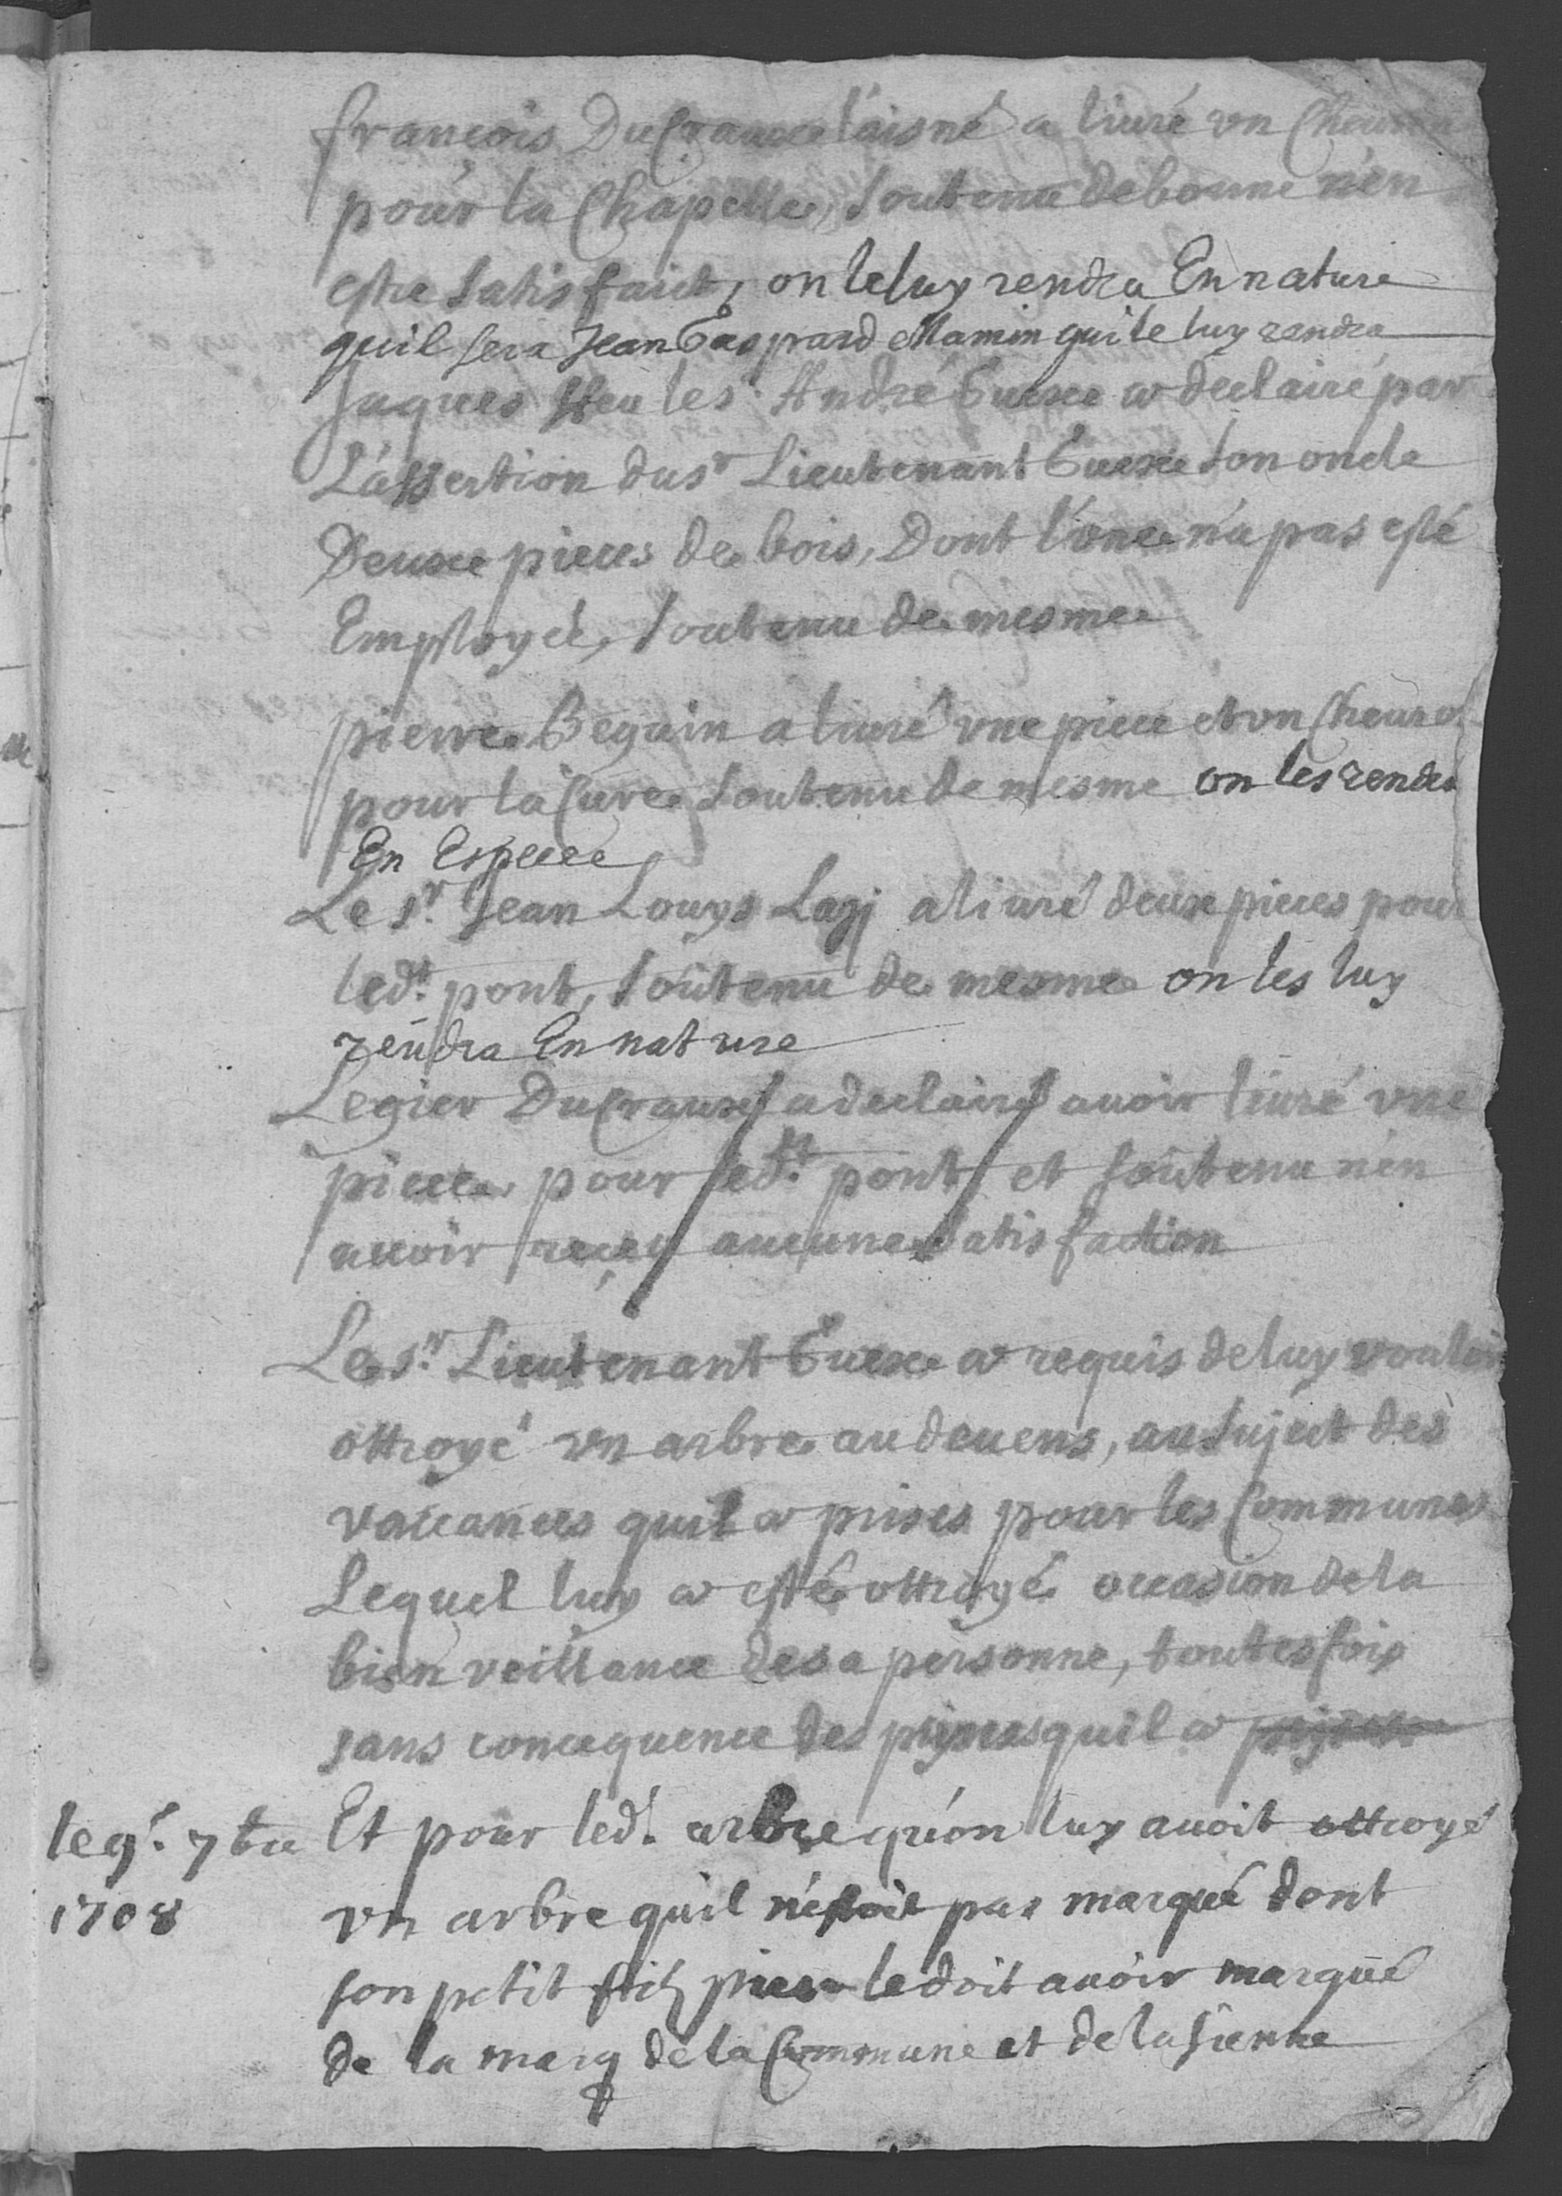 françois DuCrauxe láisné a liuré vn Cheuron
pour la Chapelle, soutenu de bonne n'en
estre satisfaict, on le luy rendra En nature
quil sera Jean Gasprard Mamin qui le luy randra
Jaques ffeu les. André Guexe a declairé par
L'assertion du sr Lieutenant Guexe son oncle
Deuxe pieces de bois, Dont l'vne n'a pas esté
Employée, soutenu de mesme
pierre Beguin a liuré vne piece et vn Cheuron
pour la Cure soutenu de mesme on les rendra
En Espece
Le sr. Jean Louys Lagj a liuré deuxe pieces pour
ledt. pont, soutenu de mesme on les luy
rendra En nature
Legier DuCrauxe a declairé auoir liuré vne
piece pour ledt. pont et soutenu n'en
auoir receu aucune satisfaction
Le sr. Lieutenant Guexe a requis de luy vouloir
ottroyé vn arbre au deuens, au sujêct des
vaccances quil a prises pour les Communes
Lequel luy a esté ottroyé occasion de la
bien veillance de sa personne, toutesfois
sans concequence des peynes quil a
le 9e. 7bre
1708
Et pour led. arbre qu'on luy auoit ottroyé
vn arbre quil n'estoit pas marqué dont
son petit filz piere le doit auoir marqué
de la marq de la Commune et de la sienne